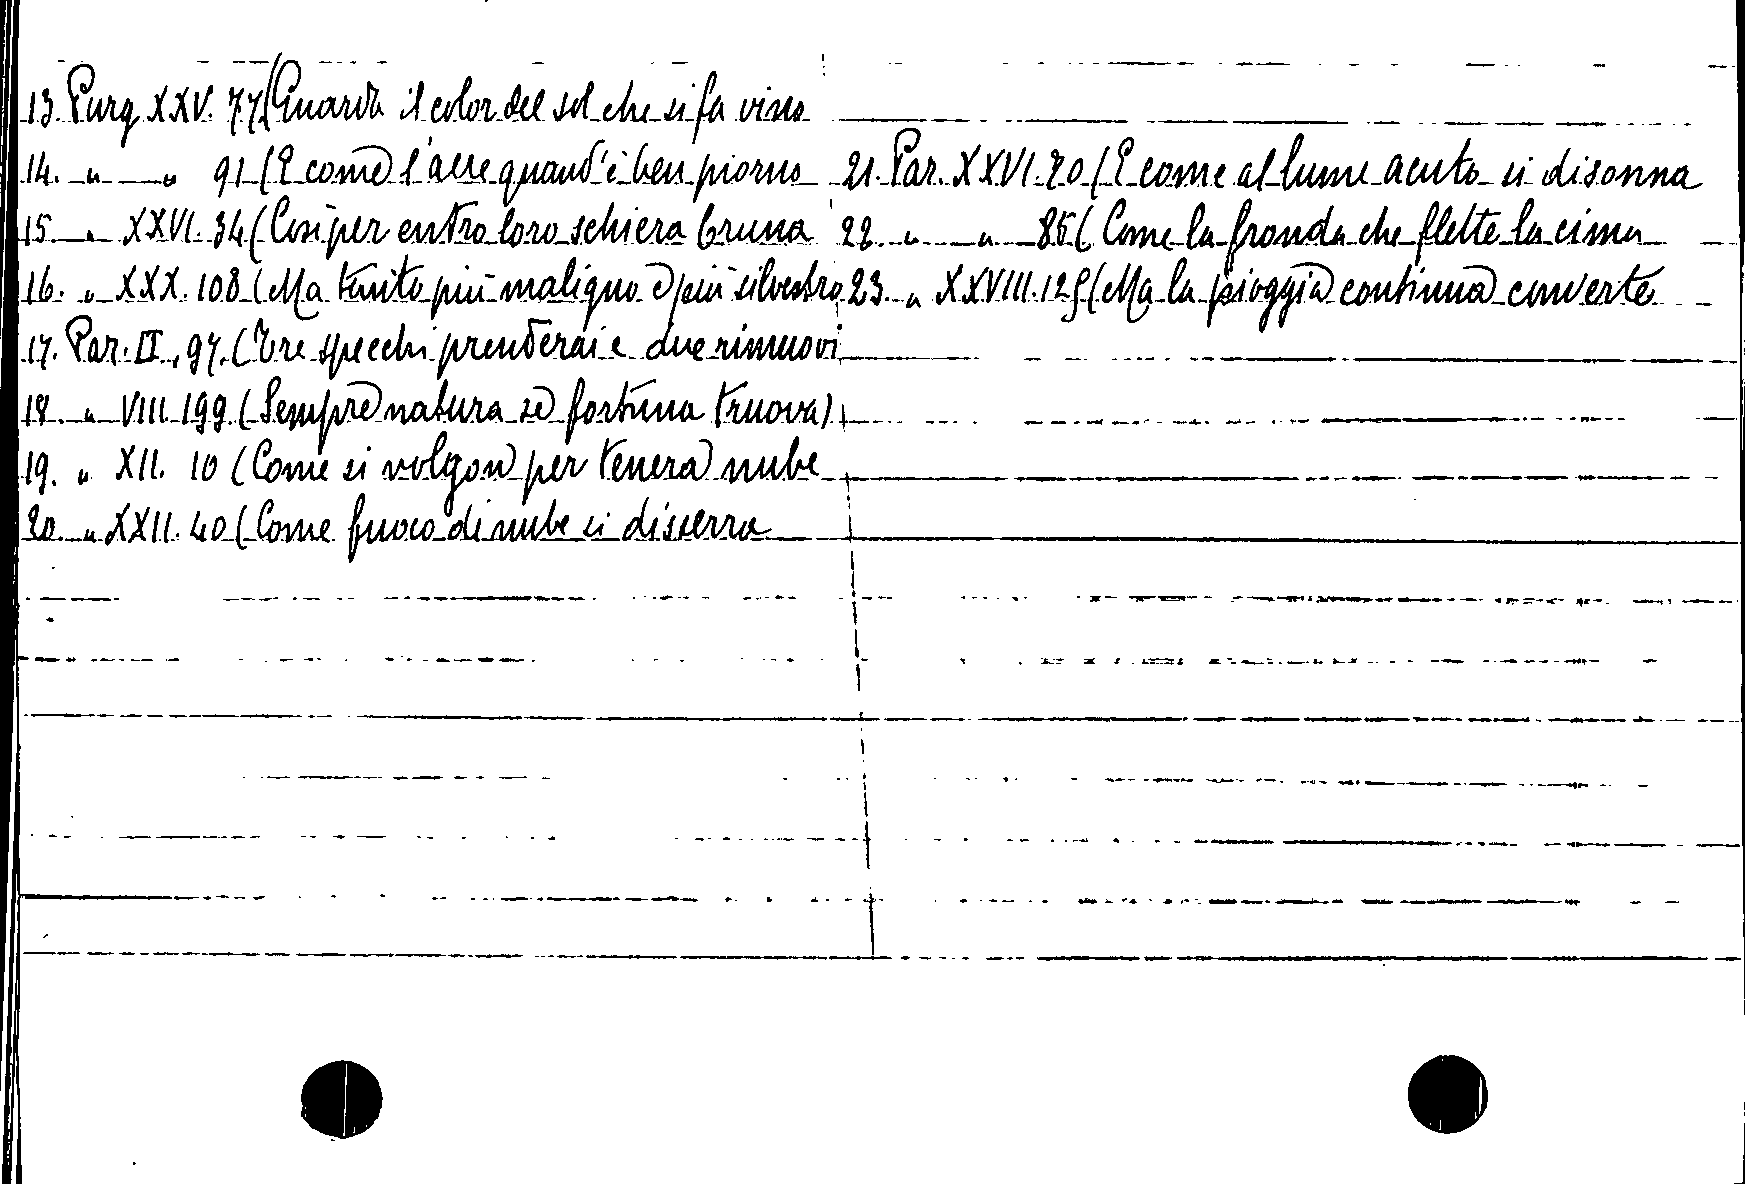 13. Purg XXV. 77 (Guarda il color del sol che si fa vino
14. " " 91 (E come l'aere quand'è ben piorno
15 " XXVI. 34 (Così per entro loro schiera bruna
16. " XXX. 108 (Ma tanto più maligno e più silvestro
17. Par. II, 97. (Tre specchi prenderai e due rimuovi
18 " VIII. 199 (Sempre natura se fortuna truova)
19. " XII. 10 (Come si volgon per tenera nube
20. " XXII. 40 (Come fuoco di nube si disserra
21. Par. XXVI. 70 (E come al lume acuto si disonna
22. " " 85 (Come la fronda che flette la cima
23. " XXVIII. 125 (Ma la pioggia continua converte